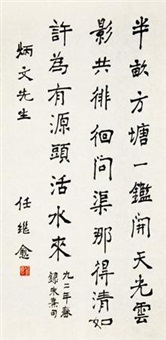 半畝方塘一鑑開天光雲
影共徘徊問渠那得清如
許為有源頭活水來
九二年春
錄朱熹句
炳文先生
任繼愈